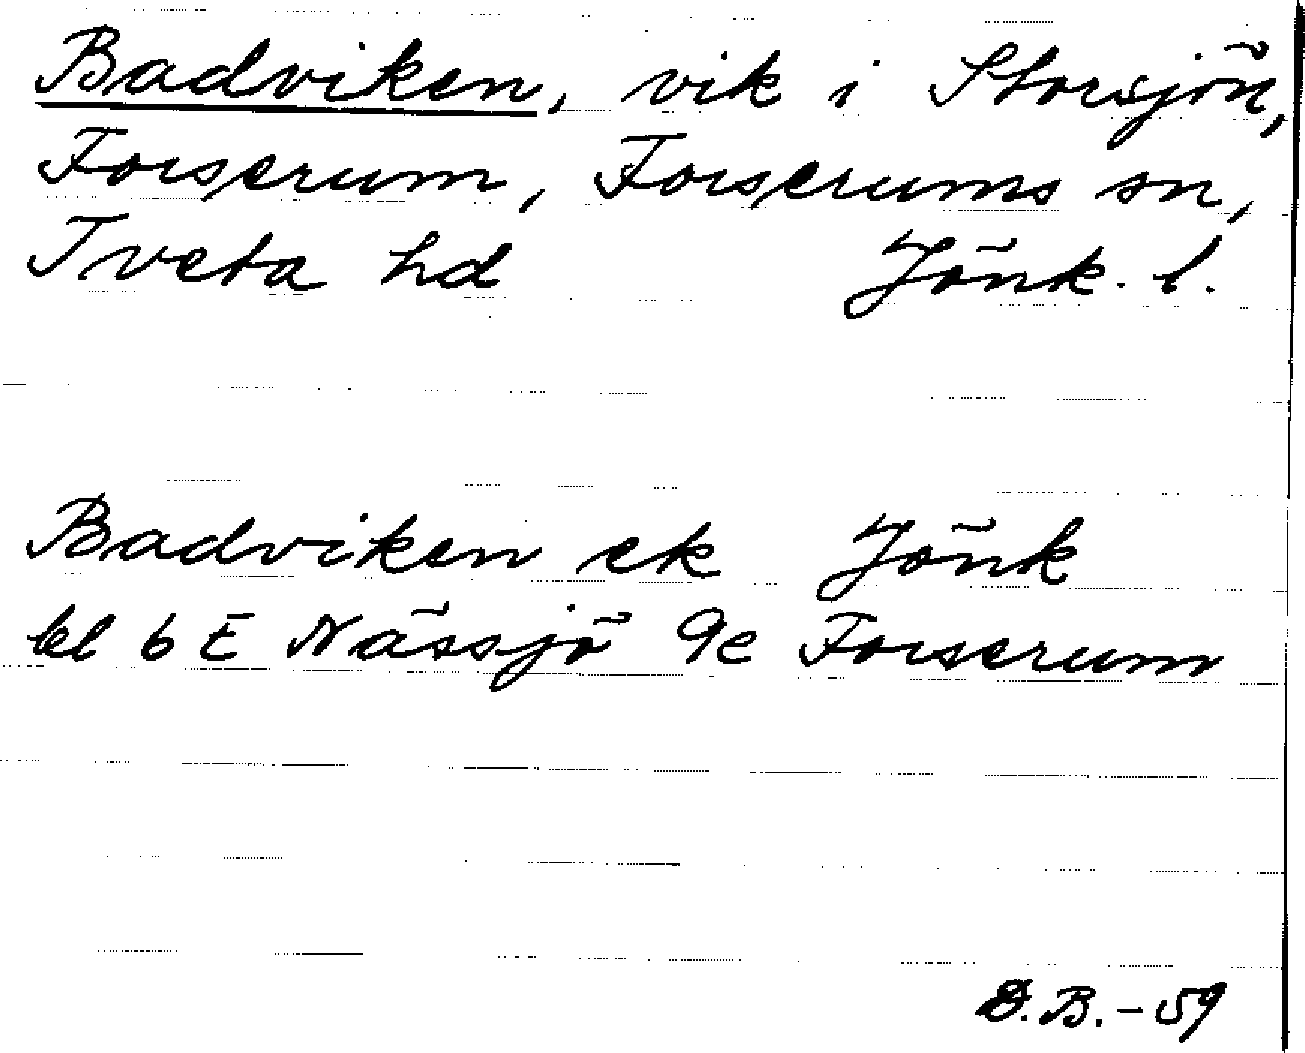 Badviken, vik i Storsjön,
Forserum, Forserums sn,
Tveta hd Jönk. l.
Badviken ek Jönk
bl 6 E Nässjö 9c Forserum
B. -59